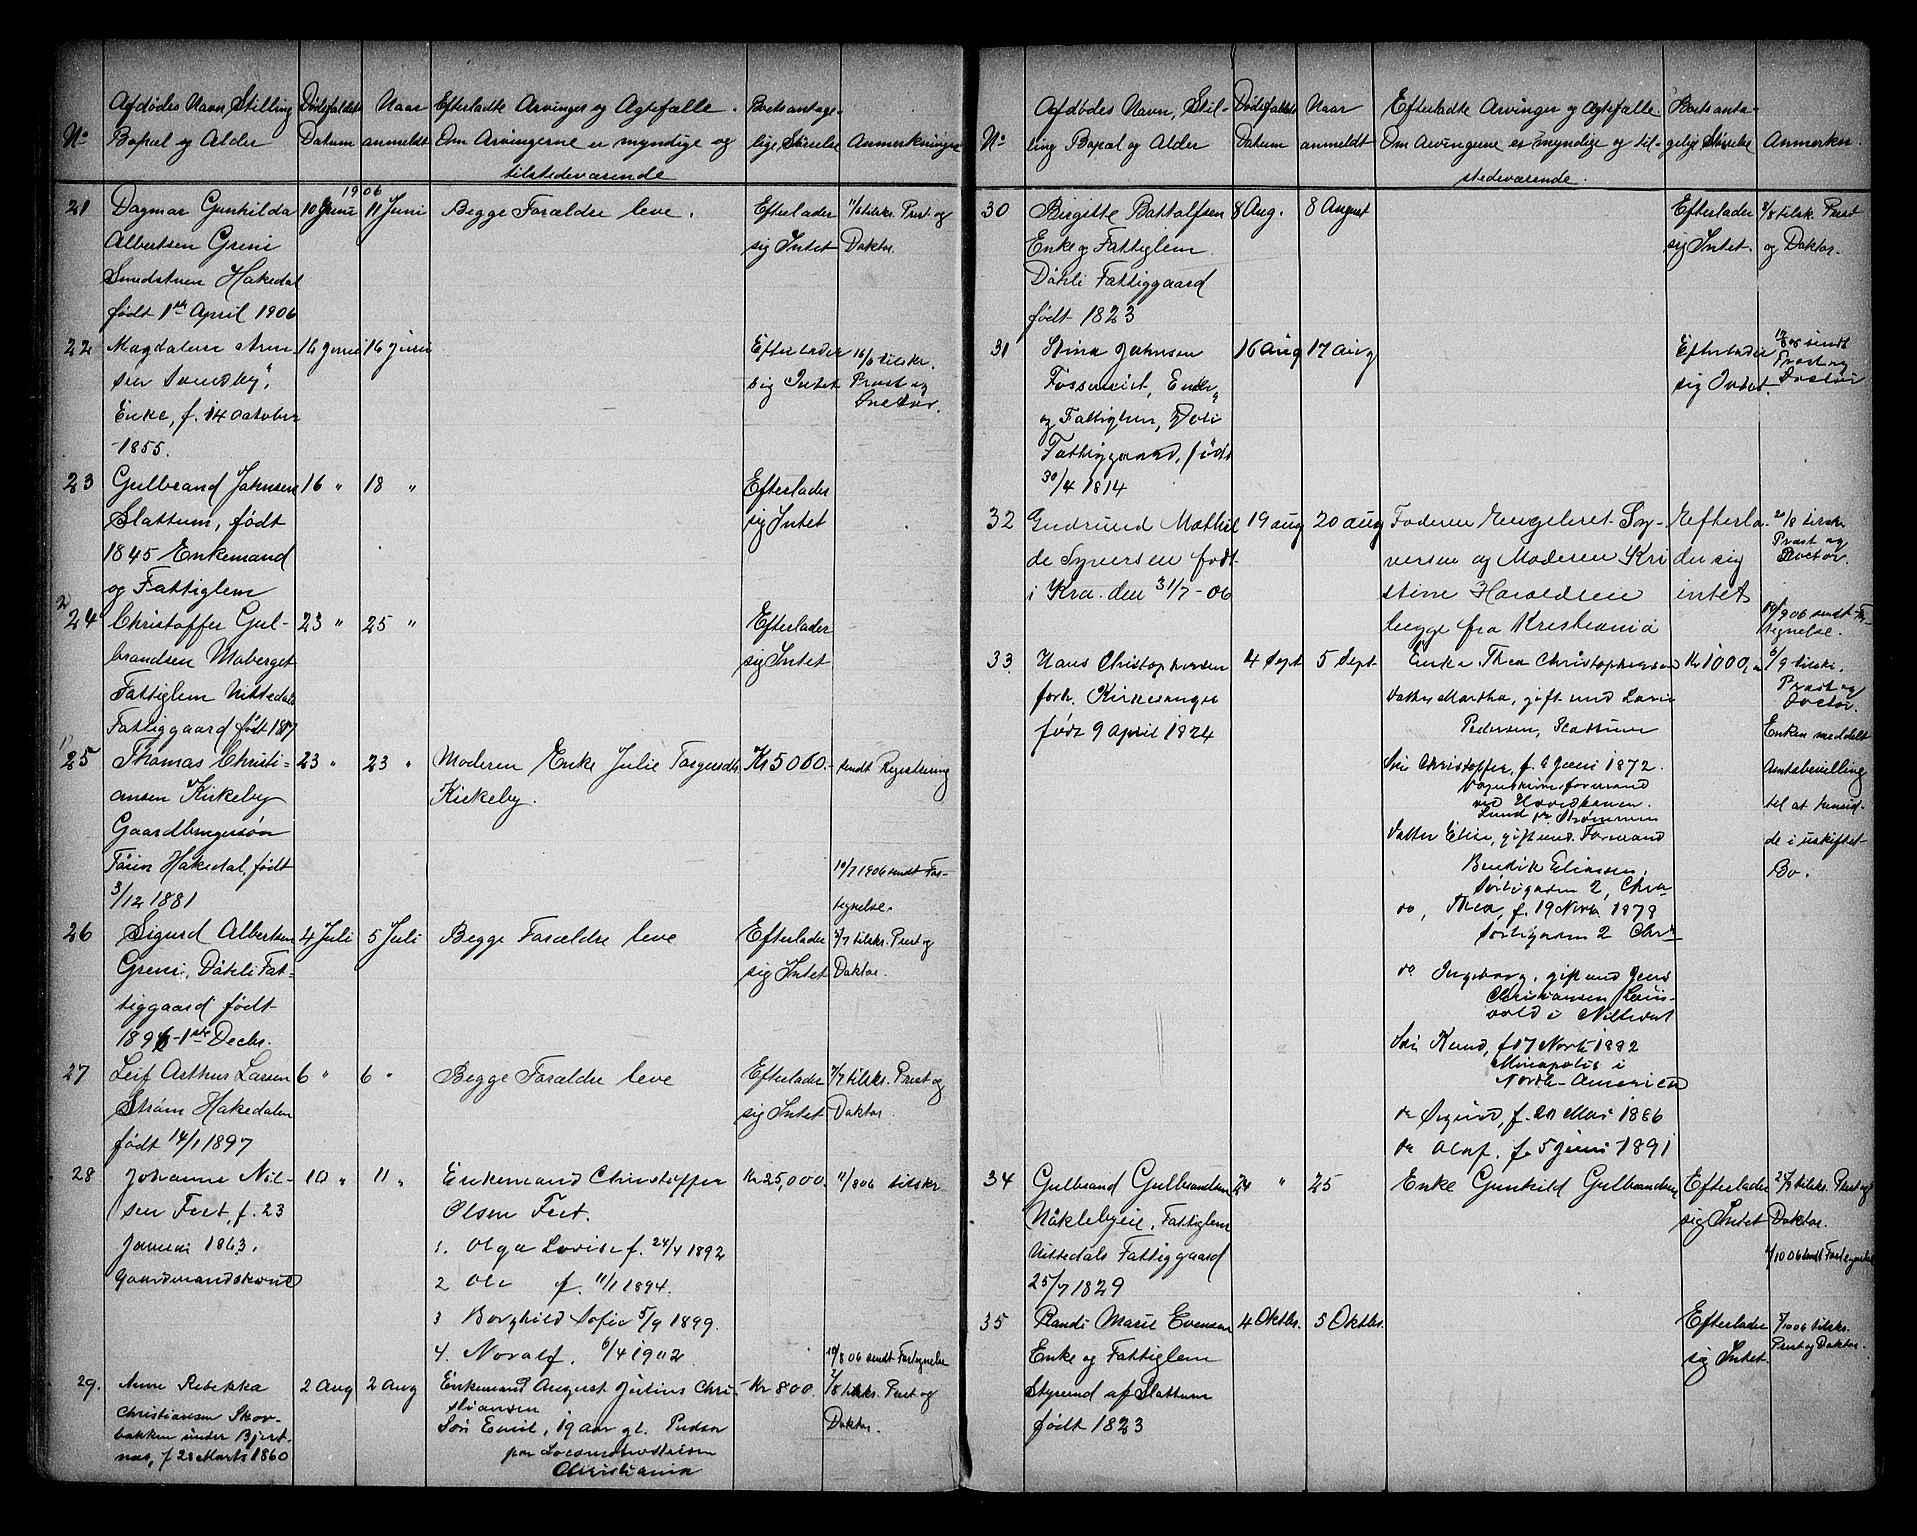 No
Afdødes Navn, Stilling
Bopæl og Alder
Dødsfaldets
Datum
Naar
anmeldt
Efterladte Arvinger og Ægtefælle.
Om Arvingerne er myndige og
tilstedeværende
Boets antage-
lige Størrelse
Anmerkninger
1906
21
Dagmar Gunhilda
Albertsen Greni
Smedstuen Hakedal
født 1ste April 1906
10 Juni
11 Juni
Begge Forældre leve.
Efterlader
sig Intet
11/6 tilskr. Prest og
Doktor.
22
Magdalene
Enke, f. 14 October
1855.
16 Juni
16 Juni
Efterlader
sig Intet
16/6 tilskr.
Prost og
Doctor.
23
Gulbrand Johnsen
Slattum, født
1845 Enkemand
og Fattiglem
16 "
18 "
Efterlader
sig Intet
2)
24
Christoffer Gul-
brandsen Moberget
Fattiglem Nittedals
Fattiggaard født 1817
23 "
25 "
Efterlader
sig Intet
1)
25
Thomas Christi-
ansen Kirkeby
Gaardbrugersøn
Hakedal, født
3/12 1881
23 "
23 "
Moderen Enke Julie Torgersdt.
Kirkeby.
Kr 5000.-
sendt Registrering
10/7 1906 sendt For-
tegnelse.
26
Sigurd Albertsen
Greni, Døhli Fat-
tiggaard født
1ste Decbr.
4 Juli
5 Juli
Begge Forældre leve
Efterlader
sig Intet
5/7 tilskr. Prest og
Doktor.
27
Leif Arthur Larsen
Strøm Hakedalen
født 14/1 1897
6 "
6 "
Begge Forældre leve
Efterlader
sig Intet
7/7 tilskr. Prest og
Doktor.
28
Johanne Nil-
sen Tvet, f. 23
Januar 1863.
Gaardmandskone
10 "
11 "
Enkemand Christoffer
Olsen Tvet.
1. Olga Lovise f. 24/4 1892
2 Ole f. 11/1 1894.
3 Borghild Sofie 5/9 1899.
4. Noralf. 6/4 1902.
Kr 25,000.
11/8 06 tilskr
10/8 06 sendt Fortegnelse
29.
Anne Rebekka
Christiansen Skov-
bakken under Bjert-
næs, f 28 Marts 1860
2 Aug
2 Aug
Enkemand August Julius Chri-
stiansen
Søn Emil, 19 Aar gl. Pudser
paa Locomotivstallen
Christiania
Kr 800.
2/8 tilskr. Prest og
Doktor.
No
Afdødes Navn, Stil-
ling Bopæl og Alder
Dødsfaldets
Datum
Naar
anmeldt
Efterladte Arvinger og Ægtefælle
Om Arvingerne er myndige og til-
stedeværende.
Boets anta-
gelige Størrelse
Anmerkn.
30
Birgitte Battolfsen
Enke og Fattiglem.
Døhli Fattiggaard
født 1823
8 Aug.
8 August
Efterlader
sig Intet.
8/8 tilsk. Prest
og Doktor.
31
Stina Johnsen
Fosseneiet, Enke
og Fattiglem, Døli
Fattiggaard, født
30/4 1814
16 Aug
17 Aug
Efterlader
sig Intet.
sendt
Prost og
Doctor
32
Gudrund Mathil
de Syversen født
i Kra. den 31/7-06
19 aug
20 aug
Faderen Engebret Sy-
versen og Moderen Kri
stine Haraldsen
begge fra Kristiania
Efterla-
der sig
intet
20/8 tilskr
Prost og
Doctor.
10/9 06 sendt
tegnelse.
33.
Hans Christophersen
forh. Kirkesanger
født 9 April 1824
4 Sept
5 Sept
Enke Thea Christophersen
Datter Martha, gift med Lauri
Pedersen, Slattum
Søn Christoffer, f. 9 Juni 1872.
ved
Lund pr Strømmen
Datter Elise, gift med Formand
Bendik Eliassen,
2, Chra
do, Thea, f. 19 Novb 1878
2 Chra
do Ingeborg, gift med Jens
Christiansen
i Nittedal
Søn Knud, f 17 Novb 1882
Minapolis i
Nordr-America
do Sigurd, f. 20 Mai 1886
do Olaf. f. 5 Juni 1891
Kr 1000,00
6/9 tilskr.
Prost og
Doctor.
Enken meddelt
Amtsbevilling
til at hensid-
de i uskiftet
Bo.
34
Gulbrand Gulbrandsen
Nåklebyeie, Fattiglem
Nittedals Fattiggaard
25/7 1829
24 "
25
Enke Gunhild Gulbrandsen
Efterlader
sig Intet
25/9 tilskr. Prest og
Doktor.
sendt Fortegnelse
35
Randi Marie Evensen
Enke og Fattiglem
Styrerud af Slattum
født 1823
4 Oktbr.
5 Oktbr.
Efterlader
sig Intet.
tilskr.
Prest og Doktor.